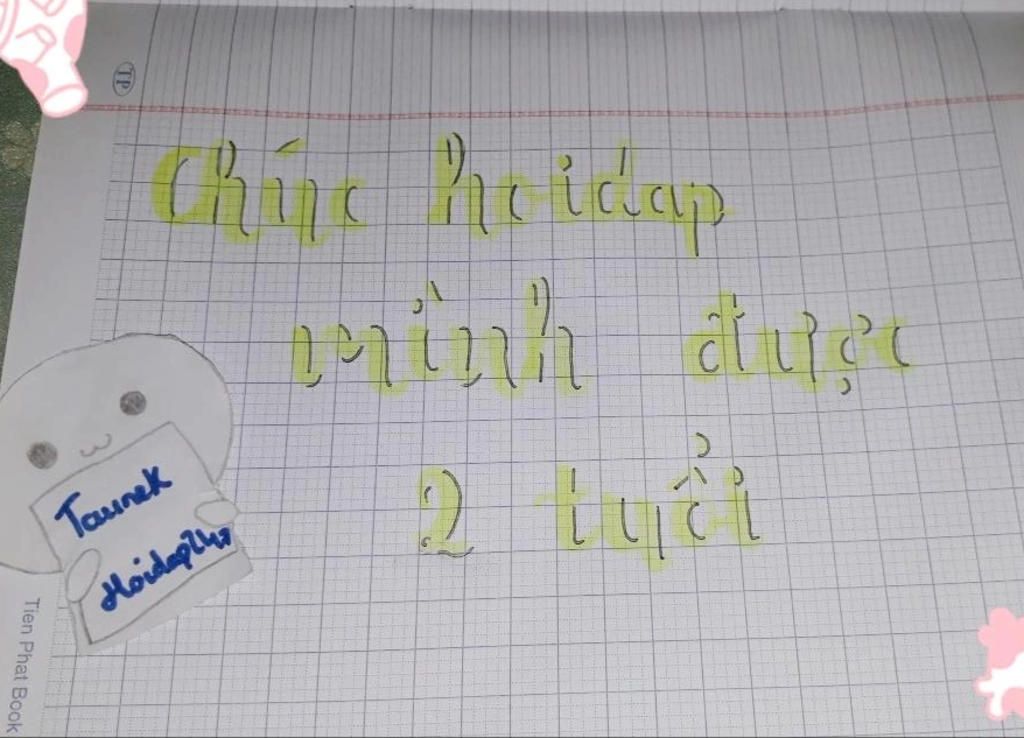 TP
Chúc hoidap
mình được
2 tuổi
Taurek
Hoidap247
Tien Phat Book